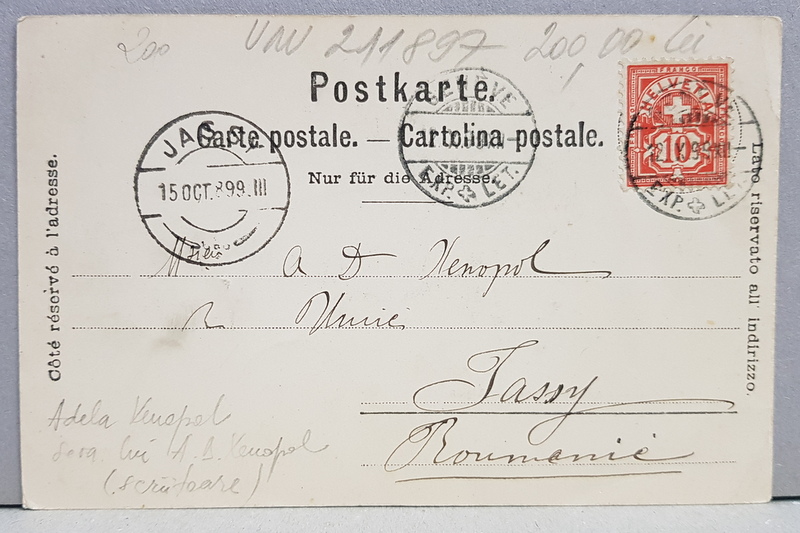 200 UNV 211897 200,00 lei
Postkarte.
Carte postale. — Cartolina postale.
Nur für die Adresse.
Côté réservé à l'adresse.
Lato riservato all' indirizzo.
HELVETIA
FRANCO
10
GENÈVE
EXP. LET.
EXP. LET.
JASSI
15 OCT. 899. III
A D Xenopol
Unie
Jassy
Roumanie
Adela Xenopol
sora lui A. D. Xenopol
(scriitoare)